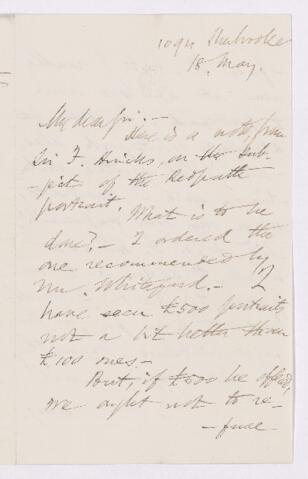 1094 Sherbrooke
18 May.
My dear Sir. —
Here is a note from
Sir F. Hincks, on the Sub-
-ject of the Redpath
portrait. What is to be
done? — I ordered the
one recommended by
Mr. — I
have seen £500 portraits
not a bit better than
£100 ones. —
But, if £500 be offered,
we ought not to re-
-fuse